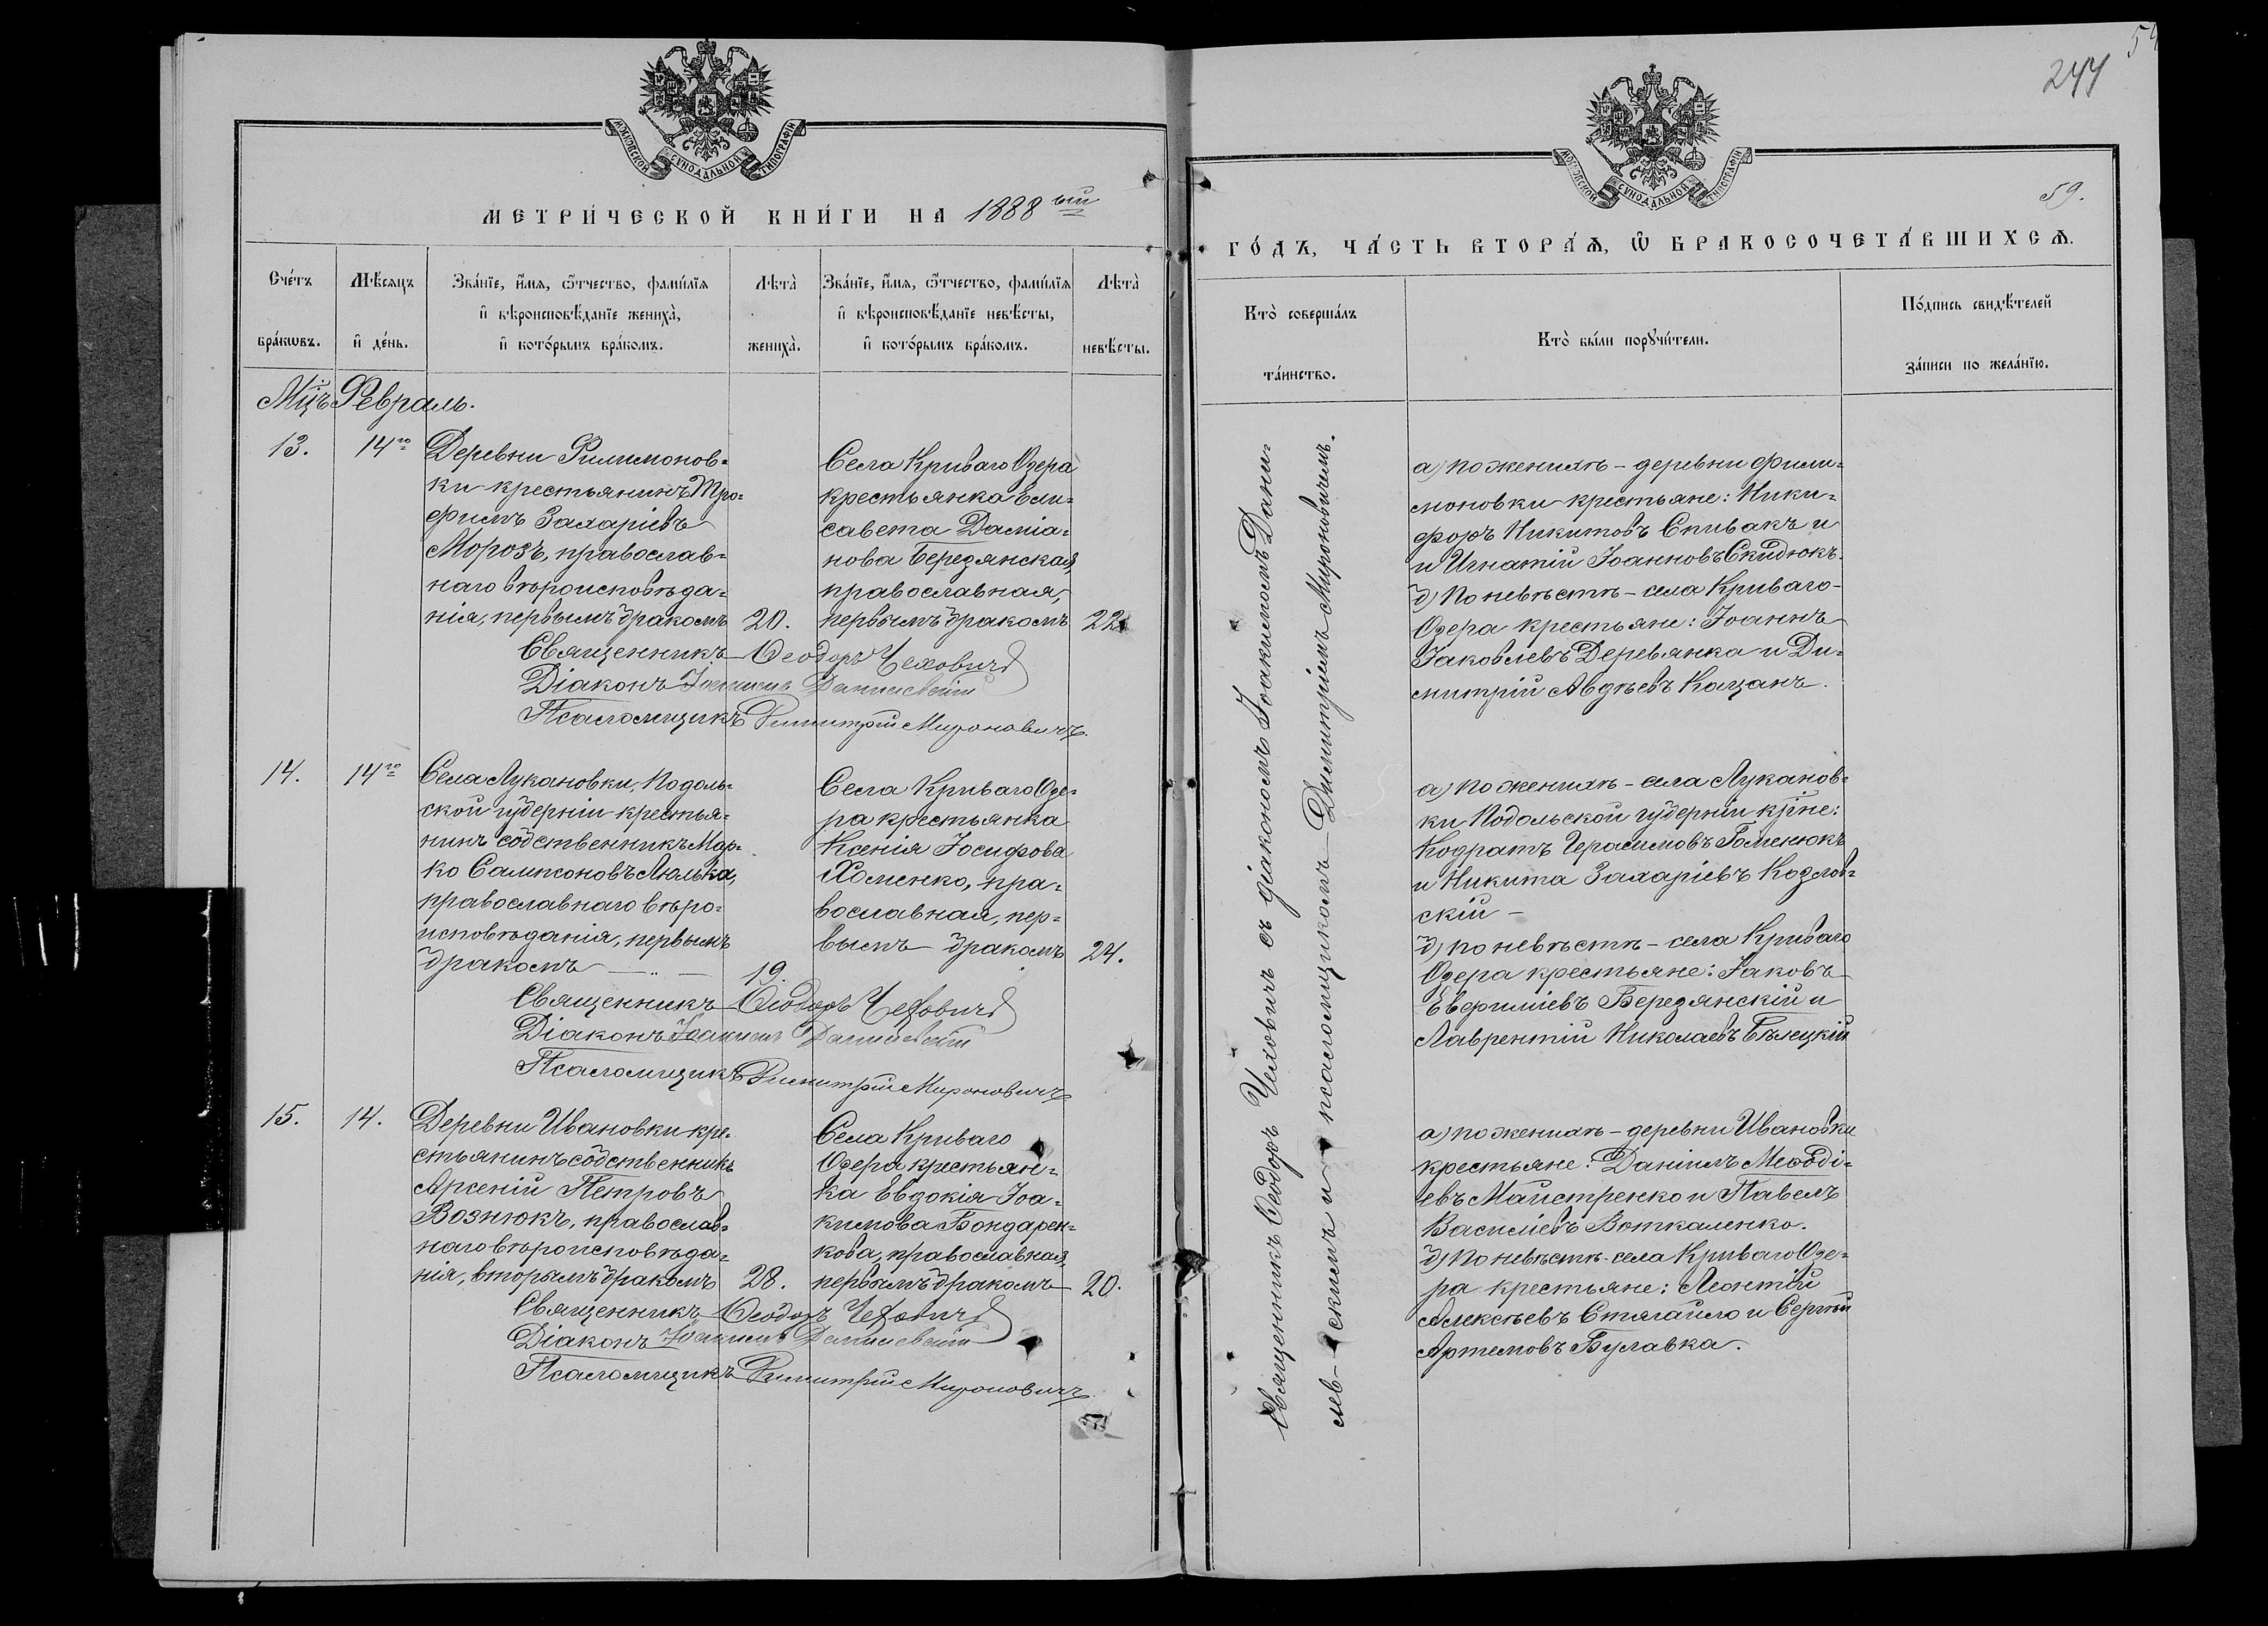 МОСКОВСКОЙ СѴНОДАЛЬНОЙ ТИПОГРАФІИ
МЕТРИ́ЧЕСКОЙ КНИ́ГИ НА 1888 ый
Сче́тъ бра́кωвъ.
Мѣ́сяцъ и҆ де́нь.
Зва́нїе, и҆́мя, ѻ҆́тчество, фами́лїя
и҆ вѣроисповѣ́данїе жениха̀,
и҆ кото́рымъ бра́комъ.
Лѣта̀ жениха̀.
Зва́нїе, и҆́мя, ѻ҆́тчество, фами́лїя
и҆ вѣроисповѣ́данїе невѣ́сты,
и҆ кото́рымъ бра́комъ.
Лѣта̀ невѣ́сты.
Мцъ Февраль.
13.
14го
Деревни Филимонов=
ки крестьянинъ Тро=
фимъ Захаріевъ
Морозъ, православ=
наго вѣроисповѣда=
нія, первымъ бракомъ
20.
Села Криваго Озера
крестьянка Ели=
савета Даміа=
нова Березянская,
православная,
первымъ бракомъ
22.
Священникъ Ѳеодоръ Чеховичъ
Діаконъ Іоакимъ Данилевскій
Псаломщикъ Димитрій Мироновичъ.
14.
14го
Села Лукановки, Подоль=
ской губерніи крестья=
нинъ собственникъ Мар=
ко Сампсоновъ Люлька,
православнаго вѣро=
исповѣданія, первымъ
бракомъ
19.
Села Криваго Озе=
ра крестьянка
Ксенія Іосифова
Хоменко, пра=
вославная, пер=
вымъ бракомъ
24.
Священникъ Ѳеодоръ Чеховичъ
Діаконъ Іоакимъ Данилевскій
Псаломщикъ Димитрій Мироновичъ
15.
14.
Деревни Ивановки кре=
стьянинъ собственникъ
Арсеній Петровъ
Вознюкъ, православ=
наго вѣроисповѣда=
нія, вторымъ бракомъ
28.
Села Криваго
Озера крестьян=
ка Евдокія Іоа=
кимова Бондарен=
кова, православная,
первымъ бракомъ
20.
Священникъ Ѳеодоръ Чеховичъ
Діаконъ Іоакимъ Данилевскій
Псаломщикъ Димитрій Мироновичъ.
54
244
МОСКОВСКОЙ СѴНОДАЛЬНОЙ ТИПОГРАФІИ
59.
ГО́ДЪ, ЧА́СТЬ ВТОРА́Ѧ, Ѡ҆ БРАКОСОЧЕТА́ВШИХСѦ.
Кто̀ соверша́лъ
та́инство.
Кто̀ бы́ли порꙋчи́тели.
По́дпись свидѣ́телей
за́писи по жела́нїю.
Священникъ Ѳеодоръ Чеховичъ съ діакономъ Іоакимомъ Дани=
лев-скимъ и псаломщикомъ Димитріемъ Мироновичемъ.
а) по женихѣ – деревни Фили=
моновки крестьяне: Ники=
форъ Никитовъ Спивакъ и
и Игнатій Іоанновъ Скидюкъ.
б) По невѣстѣ – села Криваго-
Озера крестьяне: Іоаннъ
Іаковлевъ Деревянка и Ди=
митрій Авдѣевъ Кацанъ.
а) по женихѣ – села Луканов=
ки Подольской губерніи кр҃не:
Кодратъ Герасимовъ Гоменюкъ
и Никита Захаріевъ Козлов=
скій –
б) по невѣстѣ – села Криваго
Озера крестьяне: Іаковъ
Евфиміевъ Березянскій и
Лаврентій Николаевъ Бѣлецкій
а) по женихѣ – деревни Ивановки
крестьяне: Даніилъ Меѳоді=
евъ Майстренко и Павелъ
Василіевъ Воткаленко.
б) По невѣстѣ – села Криваго Озе=
ра крестьяне: Леонтій
Алексѣевъ Стягайло и Сергѣй
Артемовъ Булавка.